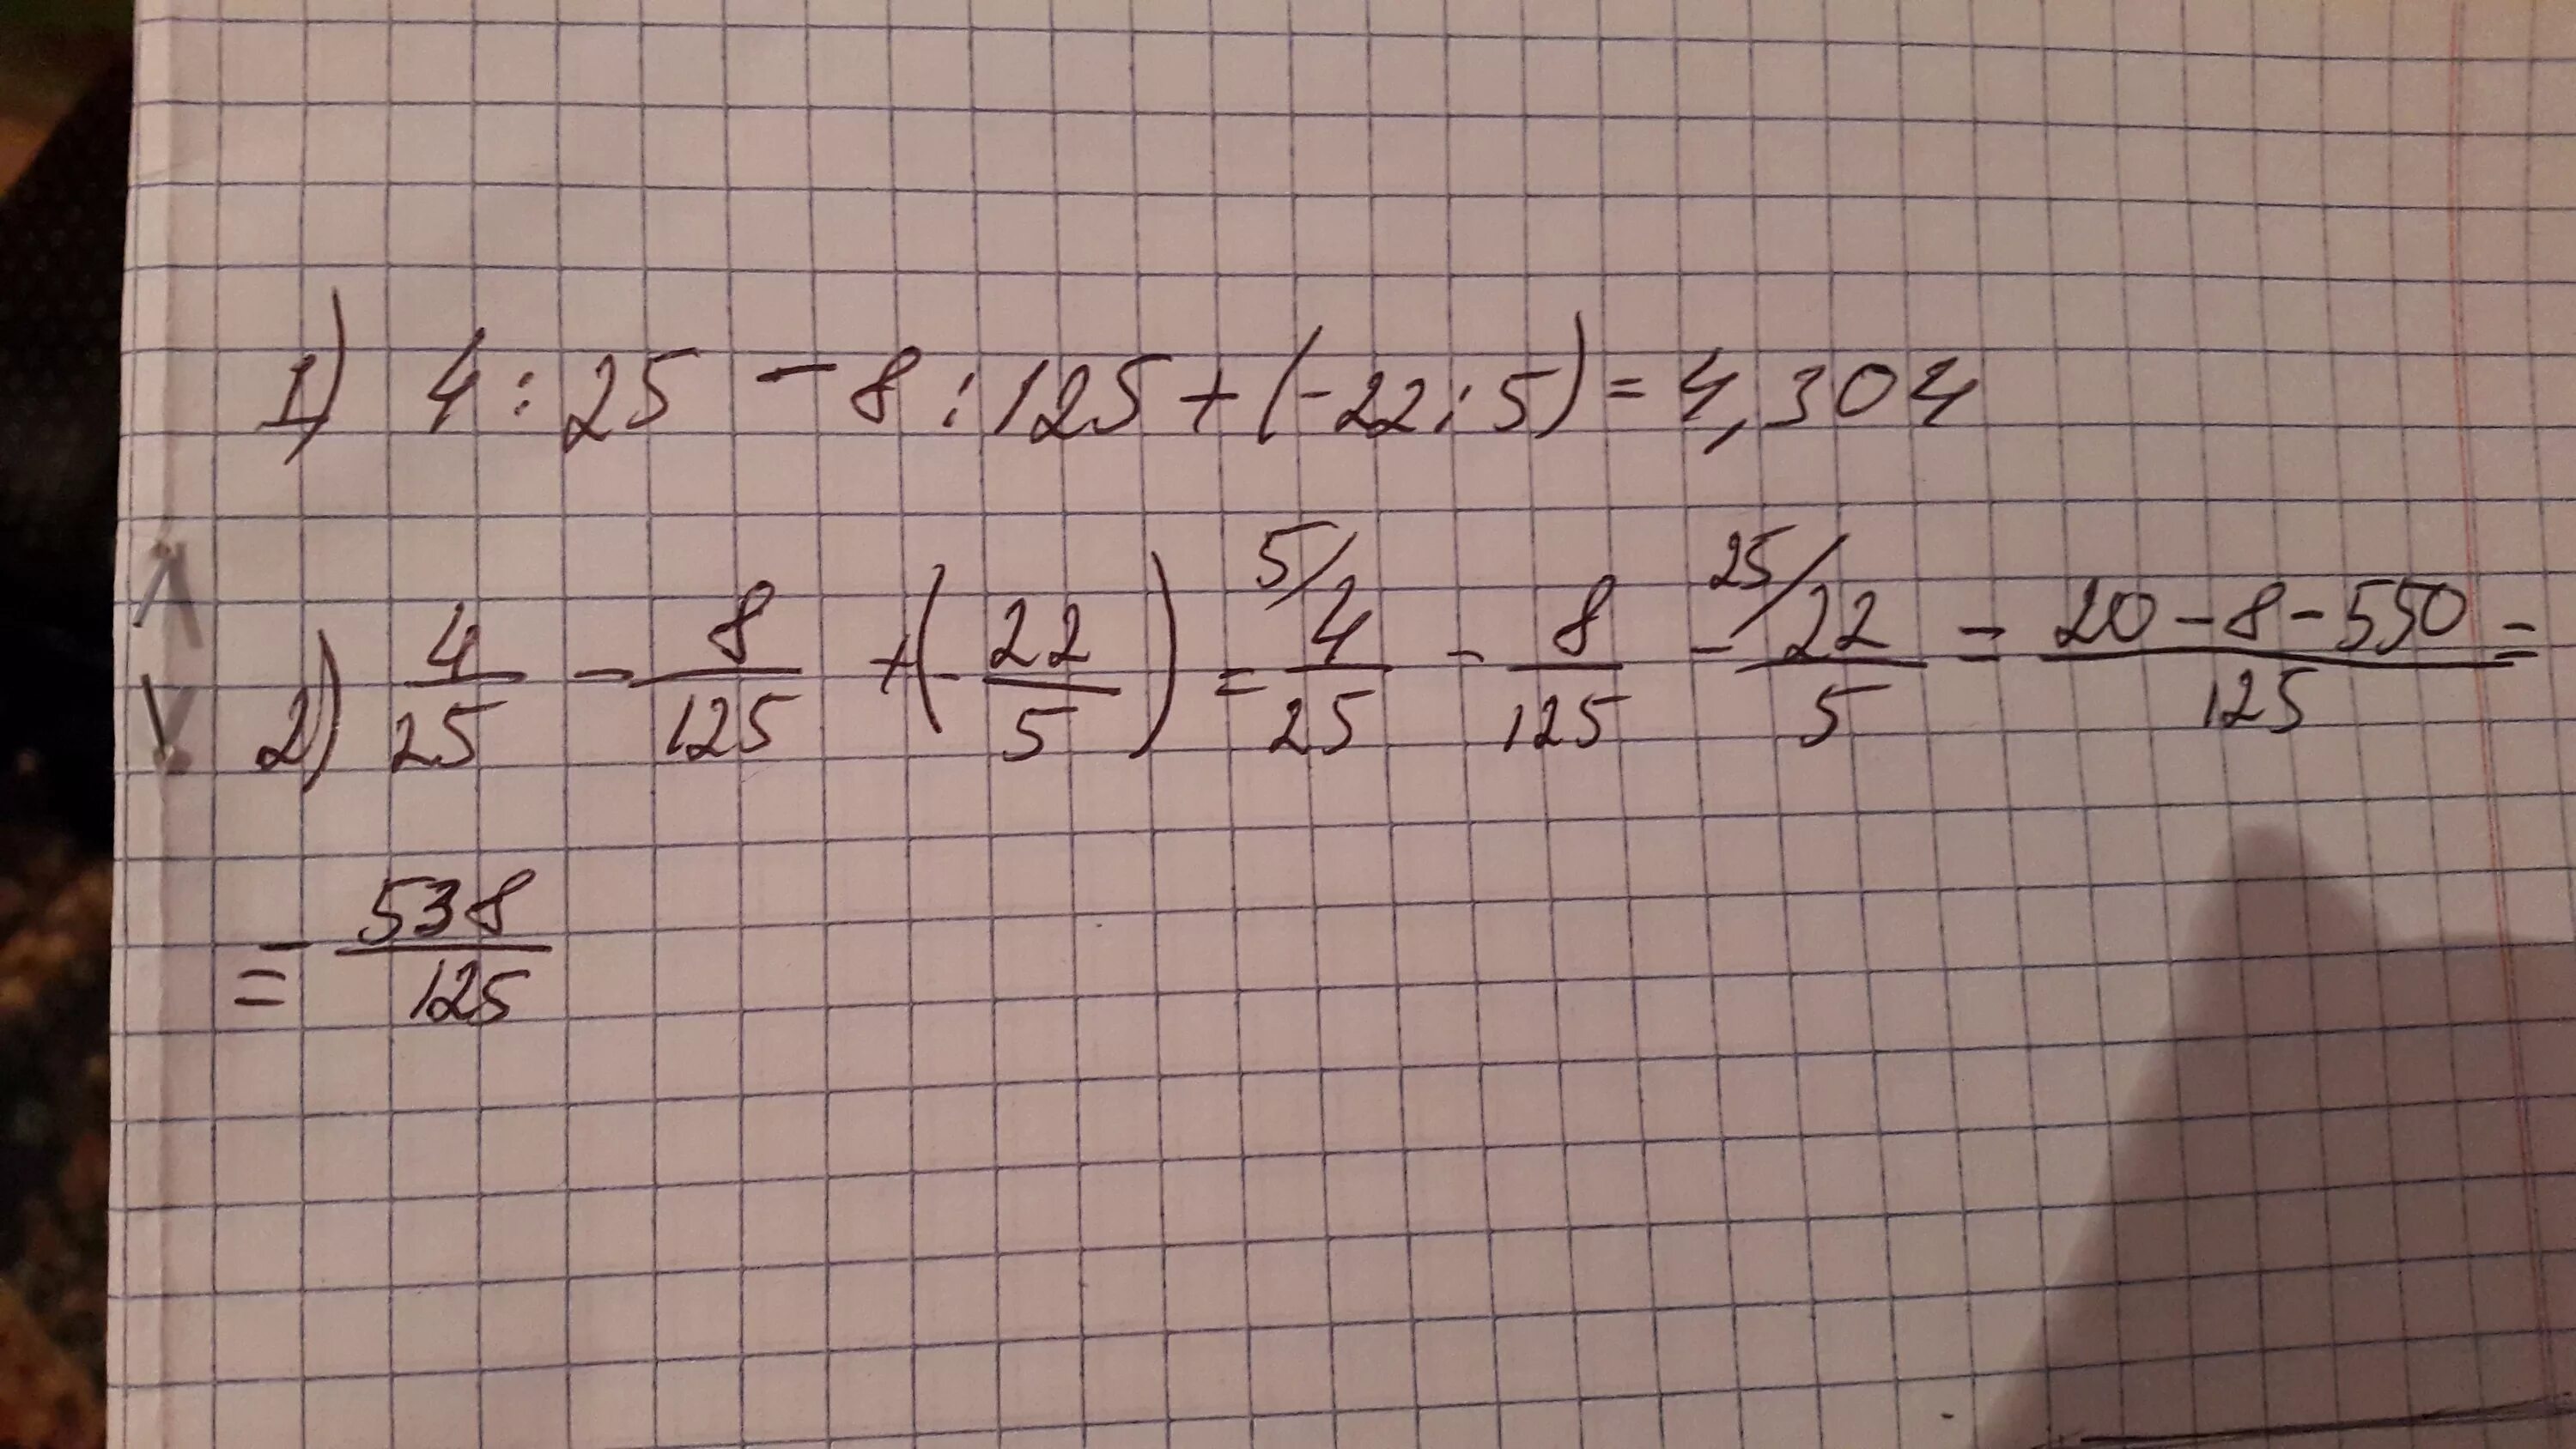 1) 4 : 25 - 8 : 125 + (-22 : 5) = 4,304
2) 4/25 - 8/125 + (- 22/5) = 5/ 4/25 - 8/125 - 25/ 22/5 = 20-8-550/125 =
= - 538/125